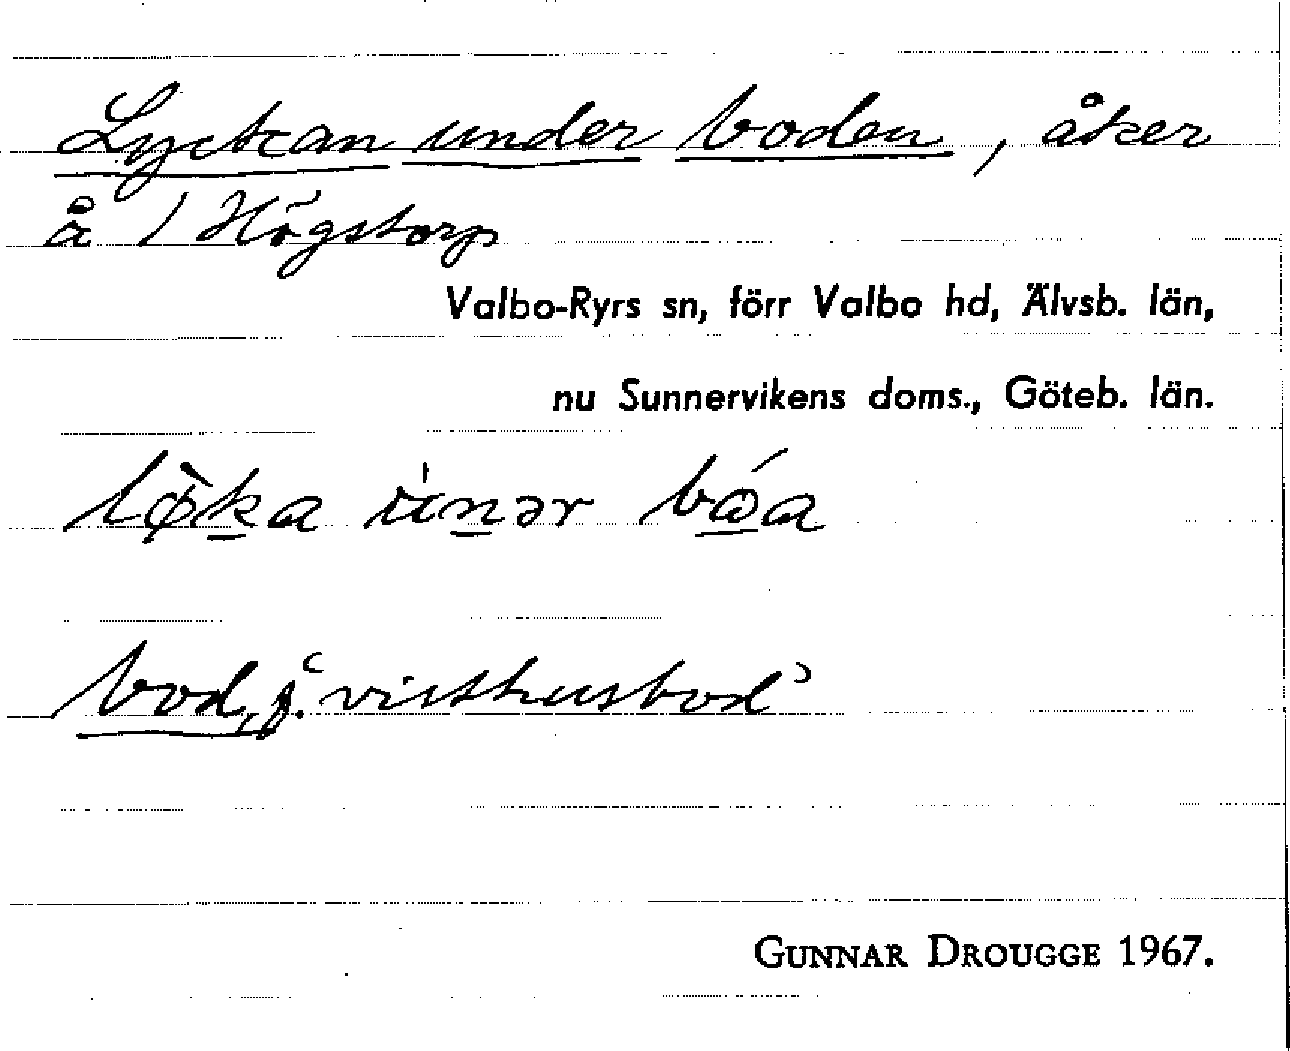 Lyckan under boden, åker
å 1 Högstorp
Valbo-Ryrs sn, förr Valbo hd, Älvsb. län,
nu Sunnervikens doms., Göteb. län.
lø̀ka ùnər bɷ́a
bod, f. ‘visthusbod’
GUNNAR DROUGGE 1967.